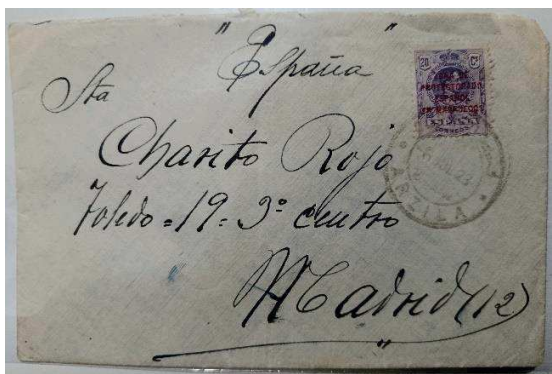 "España"
Sta
Charito Rojo
Toledo = 19 = 3º centro
Madrid (12)
20 Cs
ZONA DE
PROTECTORADO
ESPAÑOL
EN MARRUECOS
CORREOS
23
ARZILA